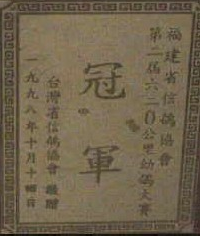 福建省信鴿協會
第二屆六二0公里幼鴿大賽
冠軍
台灣省信鴿協會 敬贈
一九九八年十月十四日